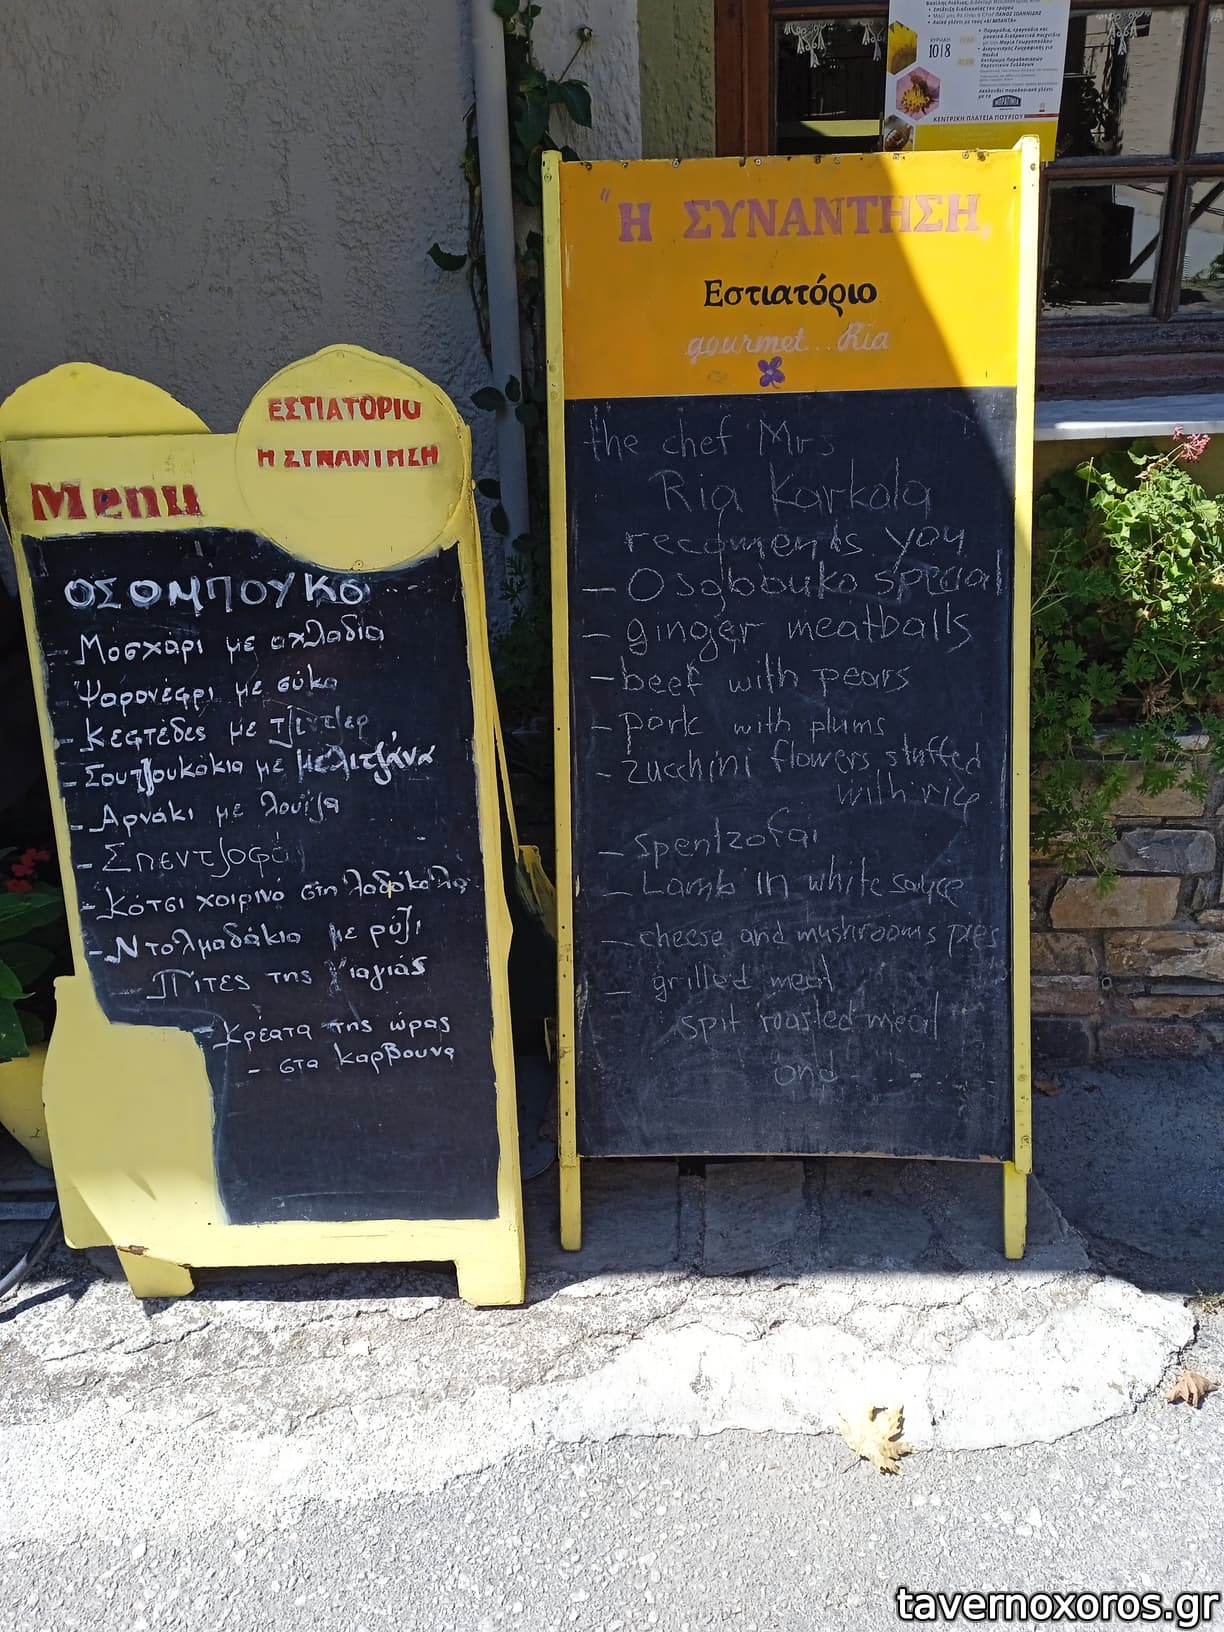 ΕΣΤΙΑΤΟΡΙΟ
Η ΣΥΝΑΝΤΗΣΗ
Menu
ΟΣΟΜΠΟΥΚΟ...
- Μοσχάρι με αχλαδια
- Ψαρονέφρι με σύκα
- Κεφτέδες με τζιντζερ
- Σουτζουκακια με μελιτζάνα
- Αρνάκι με λουίζα
- Σπεντζοφαι
- Κότσι χοιρινό στη λαδόκολα
- Ντολμαδάκια με ρύζι
- Πιτες της γιαγιάς
- Κρέατα της ώρας
- στα καρβουνα
"Η ΣΥΝΑΝΤΗΣΗ"
Εστιατόριο
gourmet...Ria
the chef Mrs
Ria Karkala
recoments you
- Osobbuko special
- ginger meatballs
- beef with pears
- pork with plums
- zucchini flowers stuffed
with rice
- Spentzofai
- Lamb in white sauce
- cheese and mushrooms pies
- grilled meat
spit roasted meat
and
ΚΥΡΙΑΚΗ
10|8
ΚΕΝΤΡΙΚΗ ΠΛΑΤΕΙΑ ΠΟΥΡΙΟΥ
tavernoxoros.gr